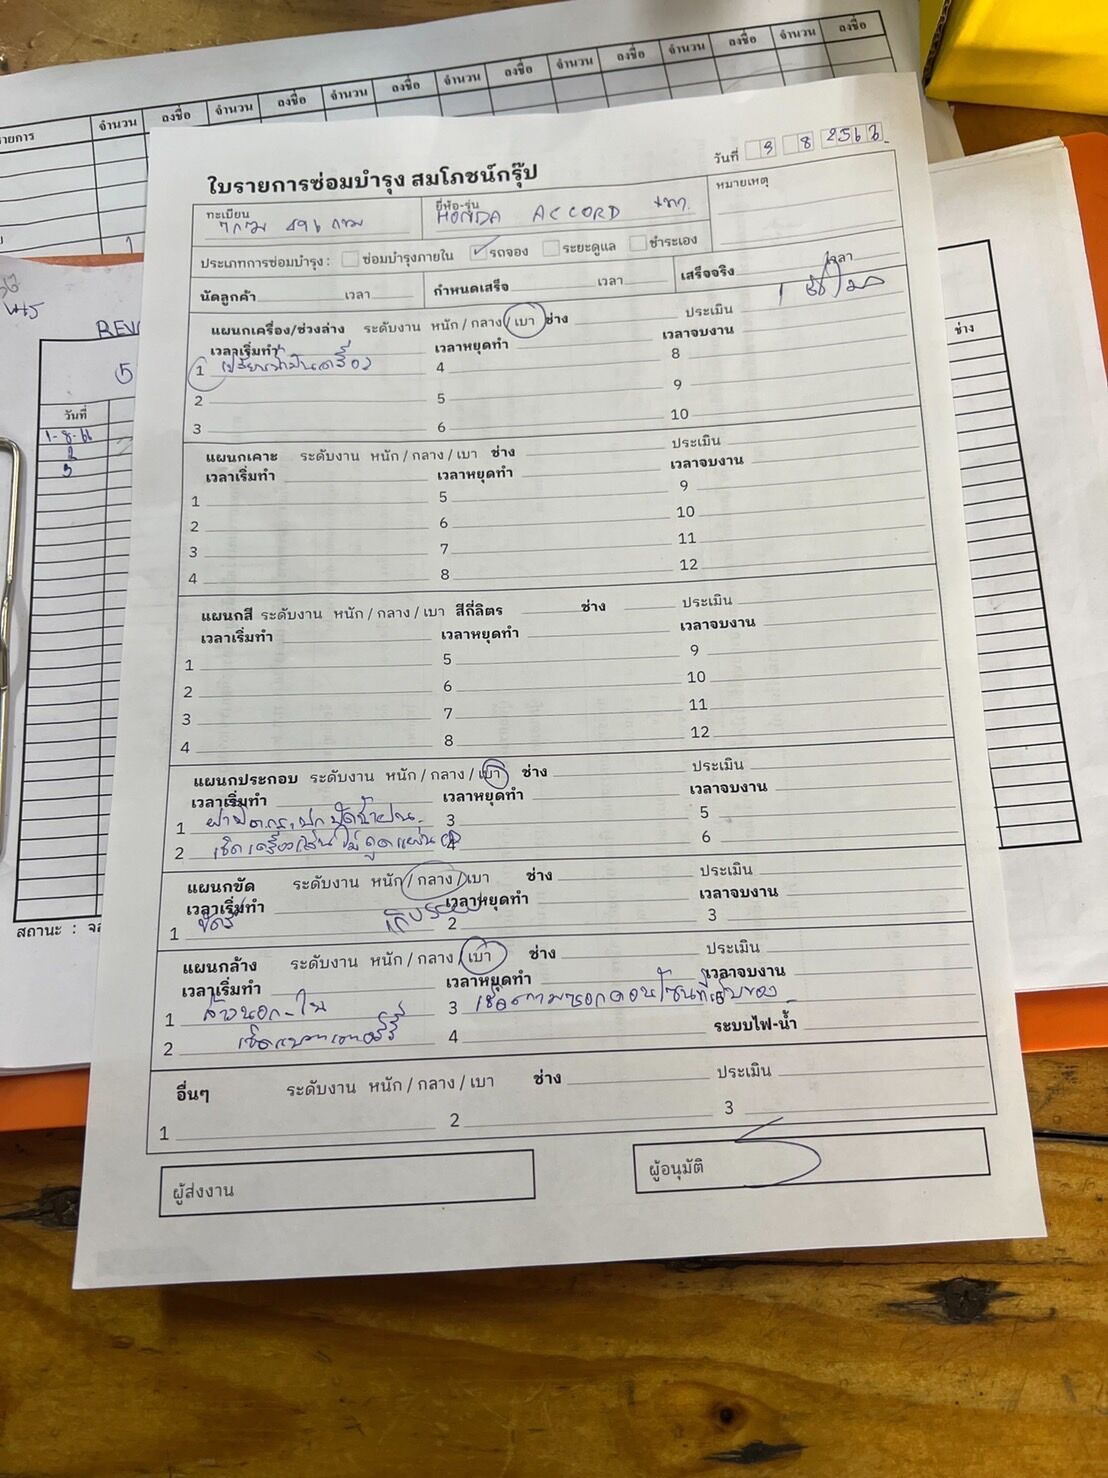 จำนวน ลงชื่อ จำนวน ลงชื่อ จำนวน ลงชื่อ จำนวน ลงชื่อ จำนวน ลงชื่อ จำนวน ลงชื่อ จำนวน ลงชื่อ
วันที่ 3 8 2566
ใบรายการซ่อมบำรุง สมโภชน์กรุ๊ป
หมายเหตุ
ทะเบียน
ยี่ห้อ-รุ่น HONDA ACCORD เทา
ประเภทการซ่อมบำรุง : ซ่อมบำรุงภายใน รถจอง ระยะดูแล ชำระเอง
นัดลูกค้า เวลา กำหนดเสร็จ เวลา เสร็จจริง เวลา
แผนกเครื่อง/ช่วงล่าง ระดับงาน หนัก / กลาง / เบา ช่าง ประเมิน
เวลาเริ่มทำ เวลาหยุดทำ เวลาจบงาน
1 เปลี่ยนน้ำมันเครื่อง 4 8
2 5 9
3 6 10
แผนกเคาะ ระดับงาน หนัก / กลาง / เบา ช่าง ประเมิน
เวลาเริ่มทำ เวลาหยุดทำ เวลาจบงาน
1 5 9
2 6 10
3 7 11
4 8 12
แผนกสี ระดับงาน หนัก / กลาง / เบา สีกี่ลิตร ช่าง ประเมิน
เวลาเริ่มทำ เวลาหยุดทำ เวลาจบงาน
1 5 9
2 6 10
3 7 11
4 8 12
แผนกประกอบ ระดับงาน หนัก / กลาง / เบา ช่าง ประเมิน
เวลาเริ่มทำ เวลาหยุดทำ เวลาจบงาน
1 3 5
2 เช็คเครื่องเล่นไม่ดูดแผ่น CD 4 6
แผนกขัด ระดับงาน หนัก / กลาง / เบา ช่าง ประเมิน
เวลาเริ่มทำ เวลาหยุดทำ เวลาจบงาน
1 ขัดสี เก็บรอย 2 3
แผนกล้าง ระดับงาน หนัก / กลาง / เบา ช่าง ประเมิน
เวลาเริ่มทำ เวลาหยุดทำ เวลาจบงาน
1 ล้างนอก-ใน 3
2 เช็คแบตเตอรี่ 4 ระบบไฟ-น้ำ
อื่นๆ ระดับงาน หนัก / กลาง / เบา ช่าง ประเมิน
1 2 3
ผู้ส่งงาน
ผู้อนุมัติ
วันที่
1-8-66
2
3
5
ช่าง